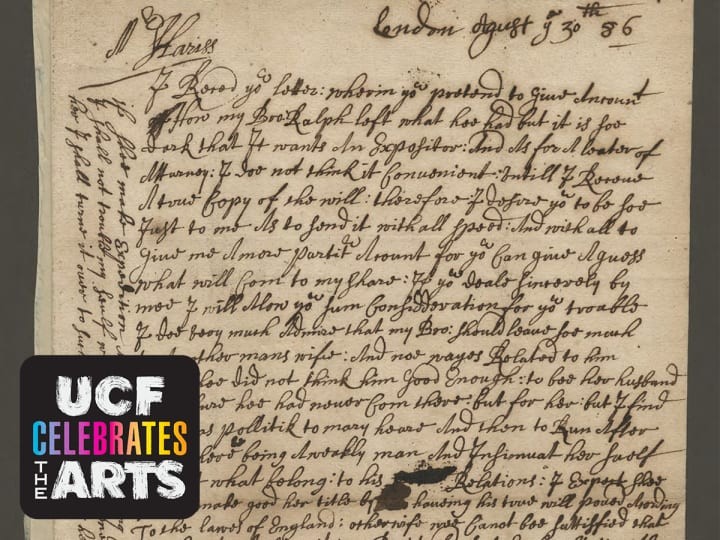 London Ogust yͤ 30ᵗʰ 86
Mʳ Hariss
I Reced yoʳ letter: wherin yoᵘ pretend to Give Ancount
How my Broʳ Ralph left what hee had but it is soe
dark that It wants An Expositor: And As for A leater of
Atturney: I doe not think it Convenient: untill I Receve
A true Copy of the will: therefore: I desire yoᵘ to be soe
Just to me As to send it with all speed: And with all to
Give me A more Partitᵉ Acount for yoᵘ Can give A guess
what will Com to my share: If yoᵘ deale sincerely by
mee I will Alow yoᵘ sum Considderation for yoʳ trouble
I doe very much Admire that my Bro: should leave soe much
other mans wife: And noe wayes Related to him
hee did not think him Good Enough: to bee her husband
hee had never Com there: but for her: but I find
as pollitik to mary heare And then to Run After
being A weakly man And Insinuat her sself
what belong: to his Relations: I Expect shee
make good her title by haveing his true will proved Acording
To the lawes of England: otherwise wee Canot bee sattisfied that
if shee make Expedition
I shall not troubl my sself
her I shall turne it over to sum
UCF
CELEBRATES
THE ARTS